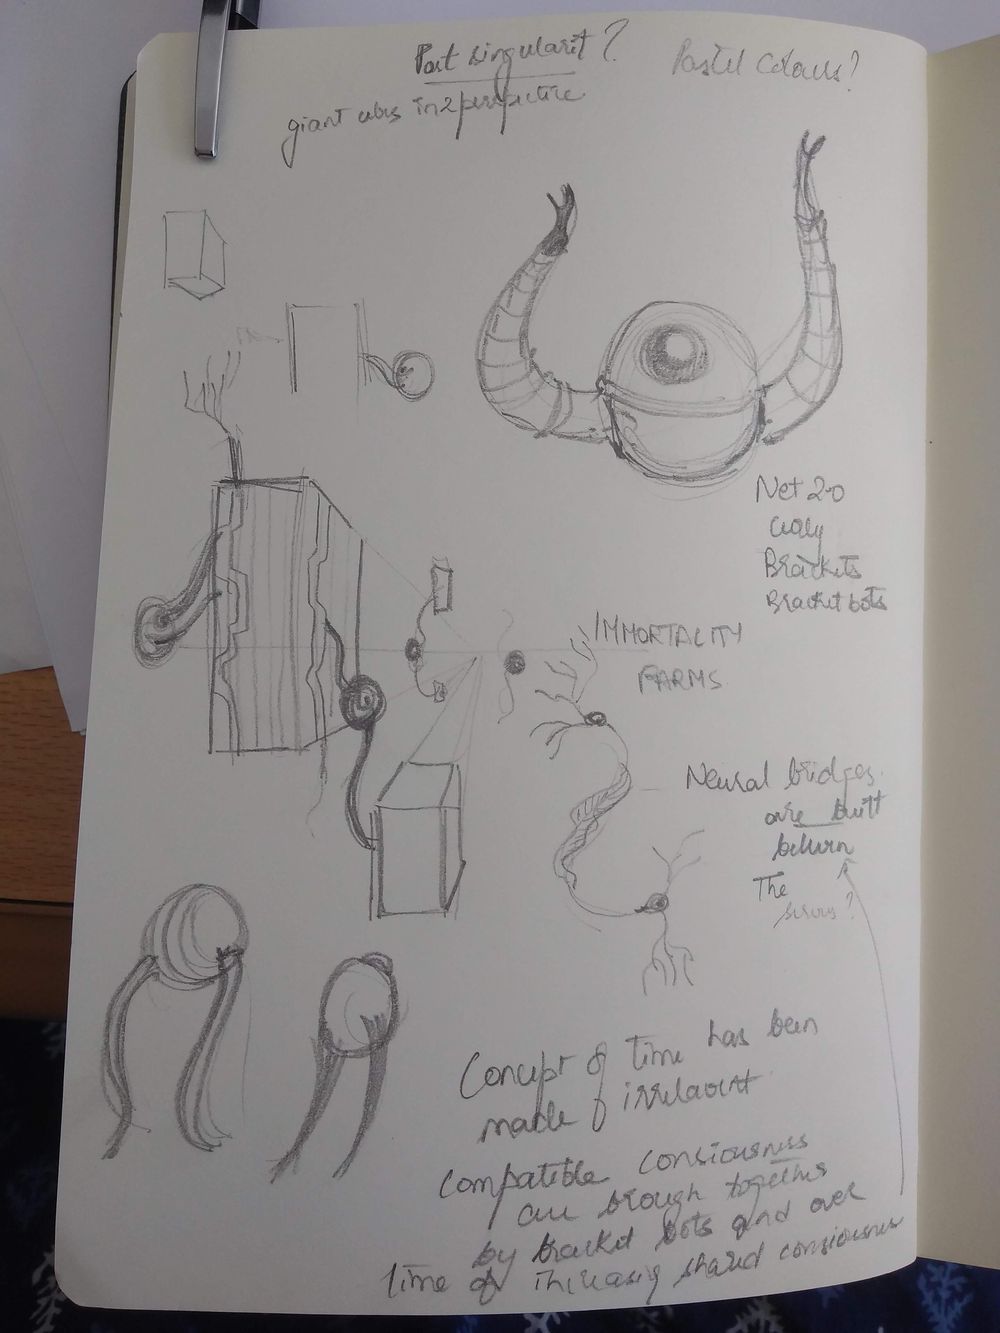 Post singularit?
Pastel Colours?
giant cubs in 2 perspective
Net 2.0
Curly
Brackets
Bracket bots
IMMORTALITY
FARMS
Neural bridges
are built
The
Concept of time has been
made of irrelavent
Compatible consiousness
are brough together
by bracket bots and over
time of increasig shared consiousness